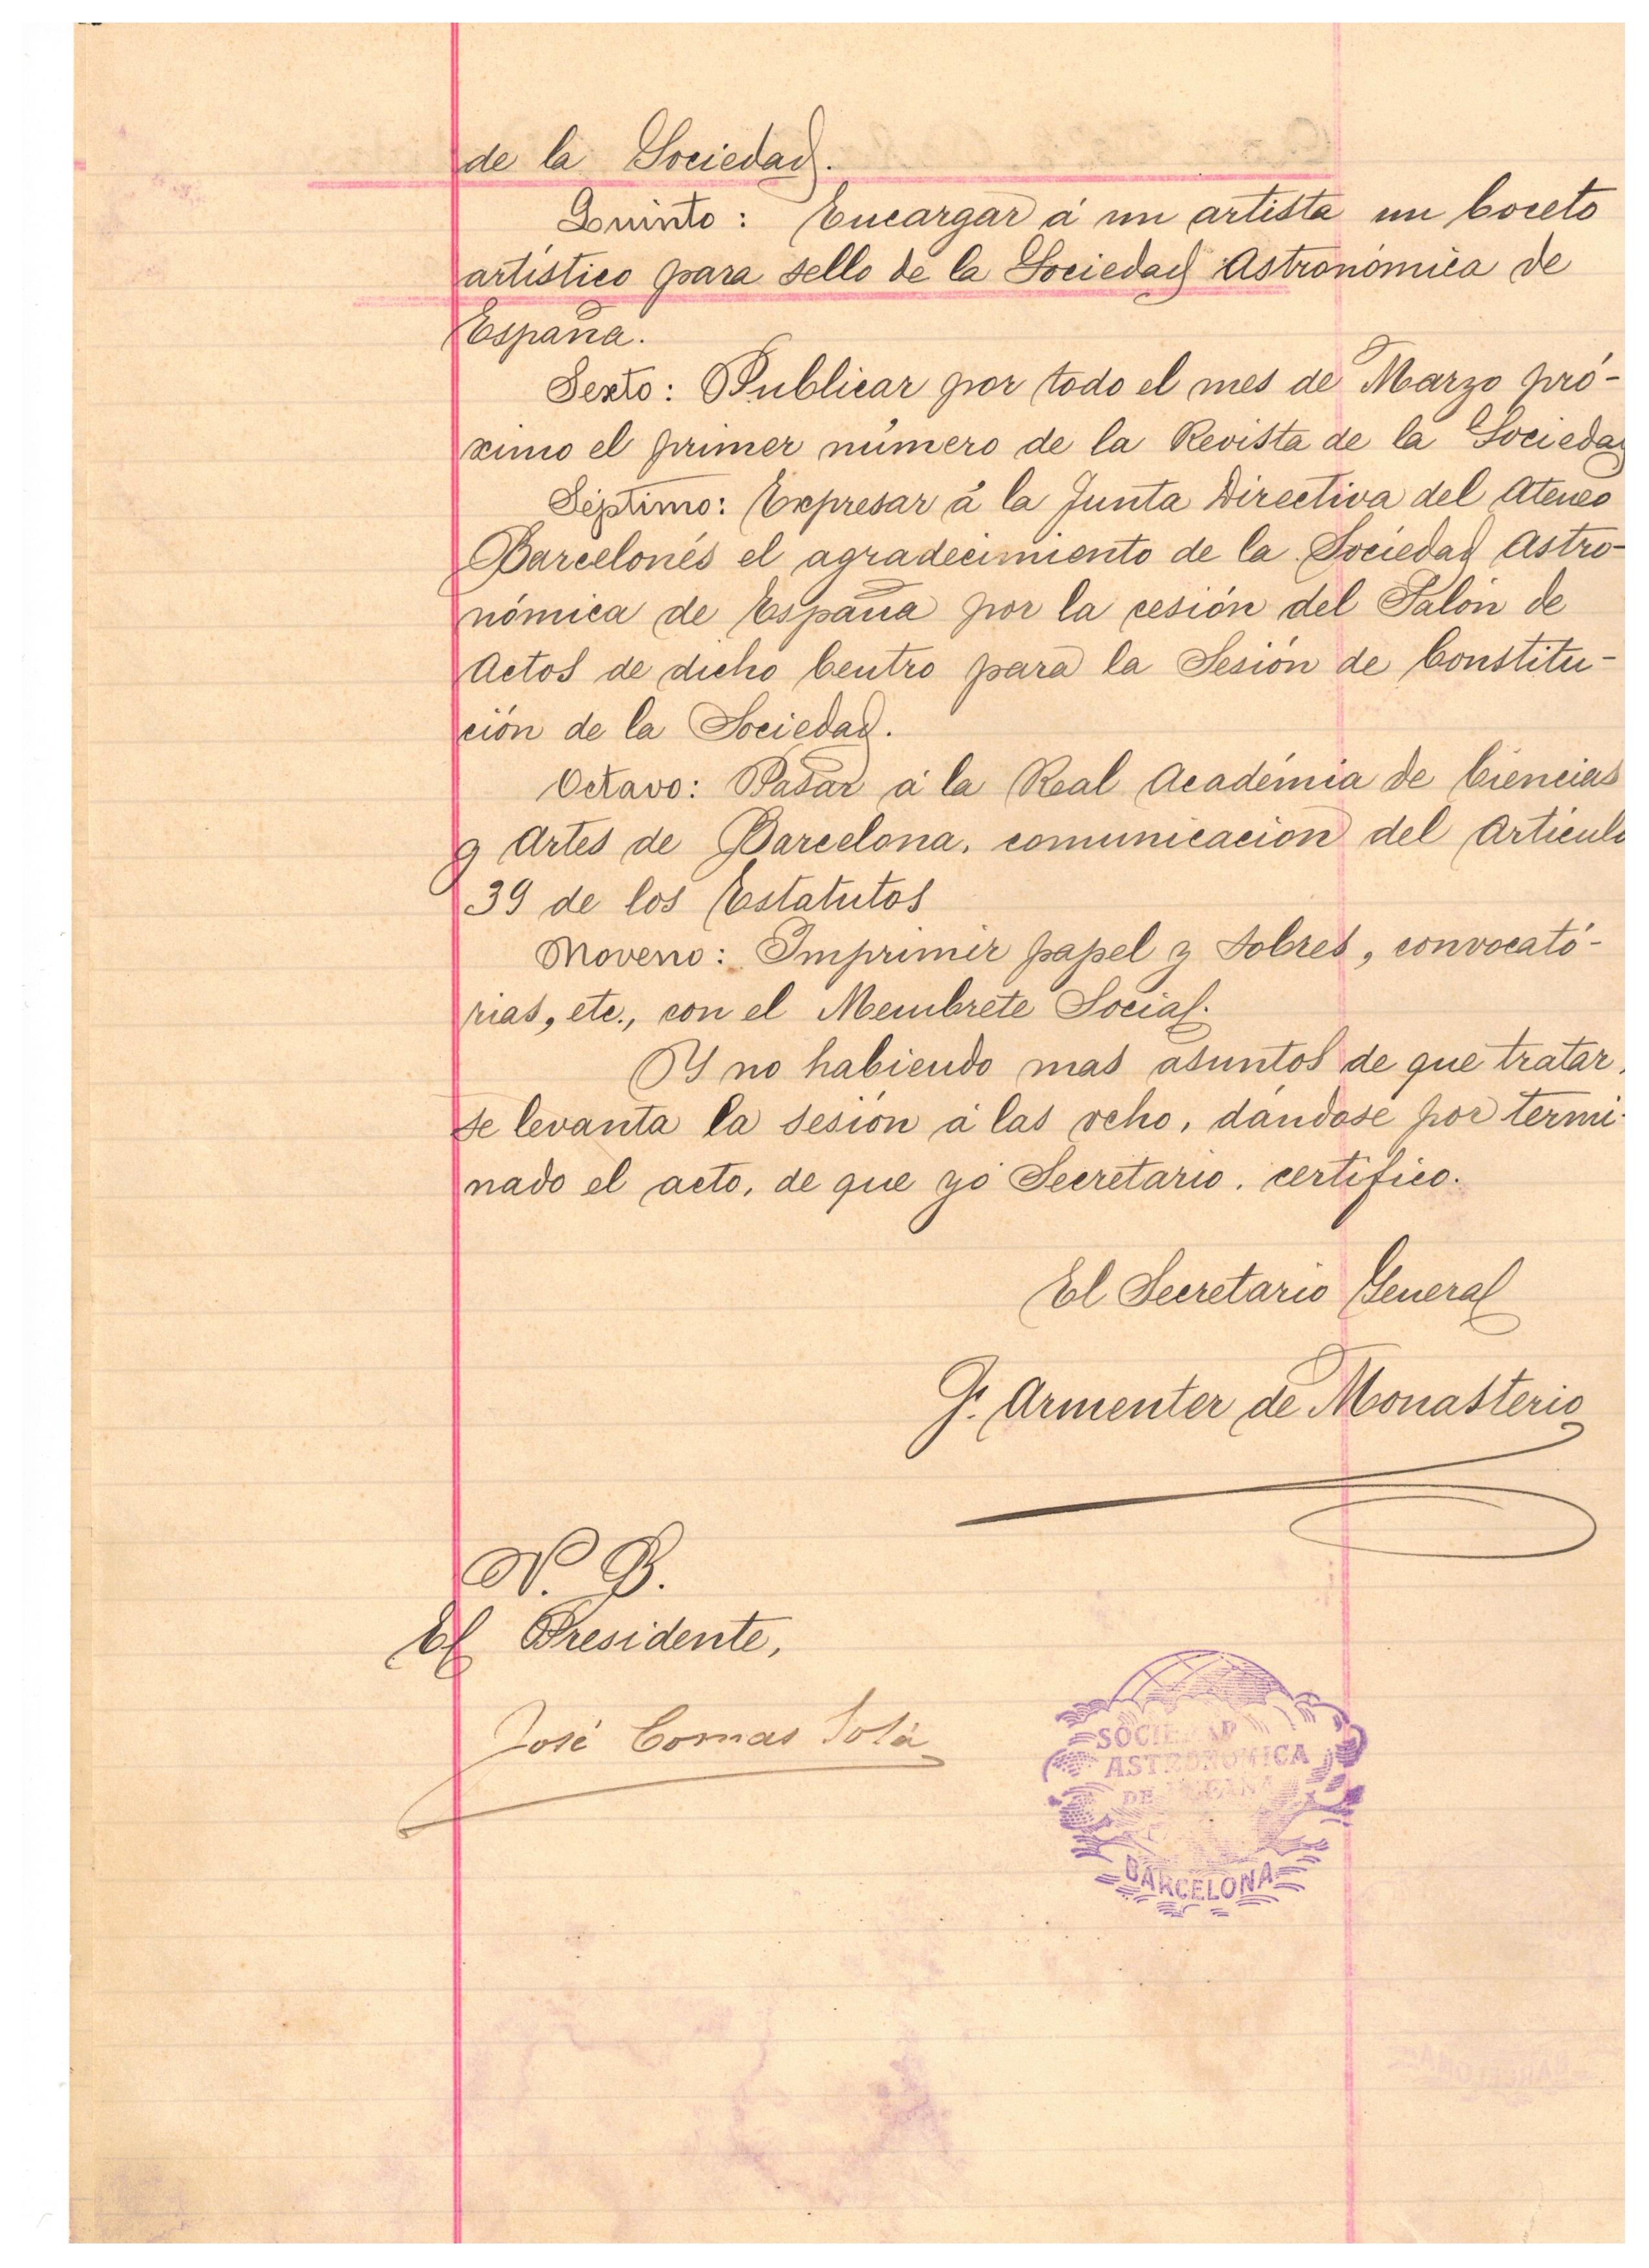 de la Sociedad.
Quinto: Encargar á un artista un boceto
artístico para sello de la Sociedad Astronómica de
España.
Sexto: Publicar por todo el mes de Marzo pró-
ximo el primer número de la Revista de la Sociedad
Séptimo: Expresar á la Junta Directiva del Ateneo
Barcelonés el agradecimiento de la Sociedad Astro-
nómica de España por la cesión del Salón de
Actos de dicho Centro para la Sesión de Constitu-
ción de la Sociedad.
Octavo: Pasar á la Real Académia de Ciencias
y Artes de Barcelona, comunicación del Artículo
39 de los Estatutos
Noveno: Imprimir papel y sobres, convocató-
rias, etc., con el Membrete Social.
Y no habiendo mas asuntos de que tratar,
se levanta la sesión á las ocho, dándose por termi-
nado el acto, de que yó Secretario, certifico.
El Secretario General
Armenter de Monasterio
V. B.
El Presidente,
José Comas Solá
SOCIEDAD
ASTRONOMICA
DE ESPAÑA
BARCELONA